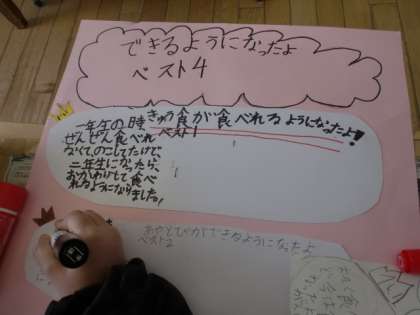 できるようになったよ
ベスト4
きゅう食が食べれるようになったよ!
ベスト1
一年生の時
ぜんぜん食べれ
なくて、のこしてたけど、
二年生になったら、
おかわりして食べ
れるようになりました。
あやとびができるようになったよ
ベスト2